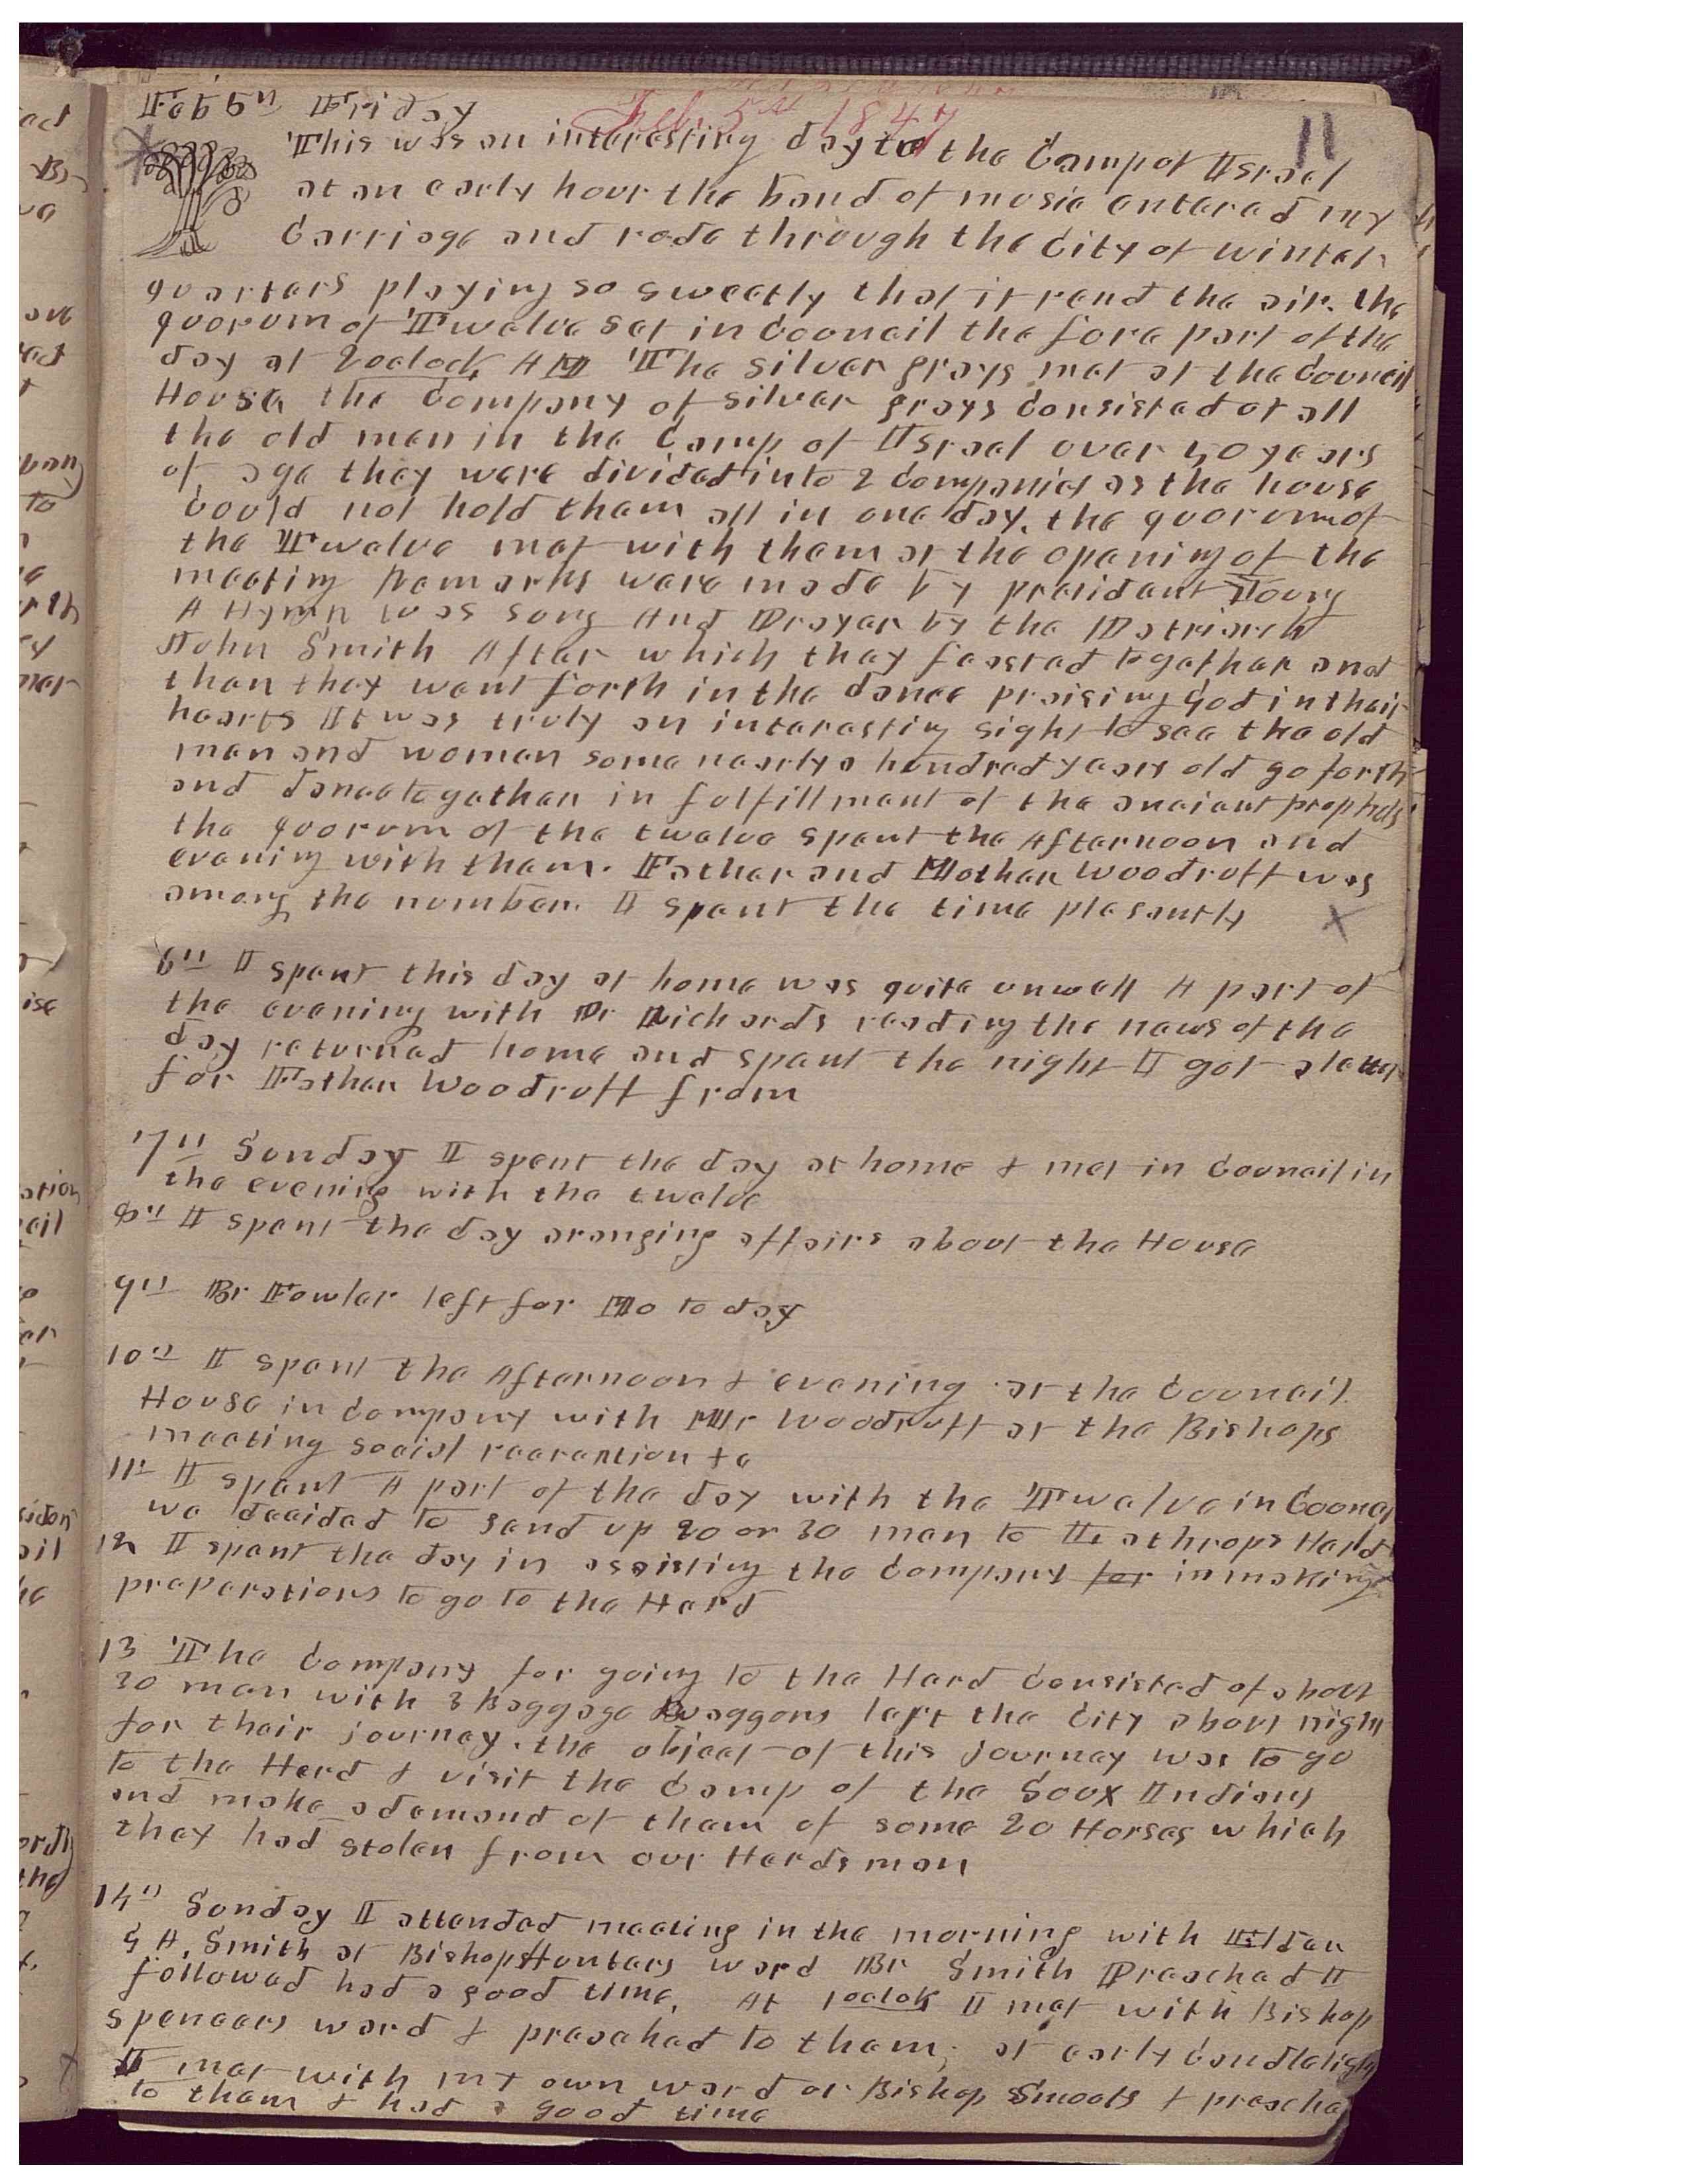 Feb 5th Friday
Feb. 5th 1847
11
This was an interesting day to the Camp of Israel
at an early hour the band of music entered my
Carriage and rode through the City of winter
quarters playing so sweetly that it rend the air. the
quorum of Twelve sat in Council the fore part of the
day at 2 oclock PM The silver grays met at the Council
House the Company of silver grays Consisted of all
the old men in the Camp of Israel over 50 years
of age they were divided into 2 Companies as the house
Could not hold them all in one day. the quorum of
the Twelve met with them at the opening of the
meeting Remarks were made by president Young
A Hymn was sung And Prayer by the Patriarch
John Smith After which they feasted together and
then they went forth in the dance praising God in their
hearts It was truly an interesting sight to see the old
men and women some nearly a hundred years old go forth
and dance together in fulfillment of the ancient prophets
the quorum of the twelve spent the Afternoon and
evening with them. Father and Mother Woodruff was
among the number. I spent the time plesantly
6th I spent this day at home was quite unwell A part of
the evening with Dr Richards reading the news of the
day returned home and spent the night I got a letter
for Father Woodruff from
7th Sunday I spent the day at home & met in Councilin
the evening with the twelve
8th I spent the day aranging affairs about the House
9th Br Fowler left for Mo to day
10th I spent the Afternoon & evening at the Council
House in Company with Mr Woodruff at the Bishops
meeting social recreation &c
11th I spent A part of the day with the Twelve in Council
we decided to send up 20 or 30 men to the Herd
12th I spent the day in assisting the Company for in making
preperations to go to the Herd
13 The Company for going to the Herd Consisted of about
30 men with 3 Baggage waggons left the City about night
for their journey. the object of this journey was to go
to the Herd & visit the Camp of the Soux Indians
and make a demand of them of some 20 Horses which
they had stolen from our Herdsmen
14th Sunday I attended meeting in the morning with Elder
G A. Smith at Bishop Hunters ward Br Smith Preached I
followed had a good time. At 1 oclok I met with Bishop
Spencers ward & preached to them; at early Candlelight
I met with my own ward or Bishop Smoots & preache
to them & had a good time